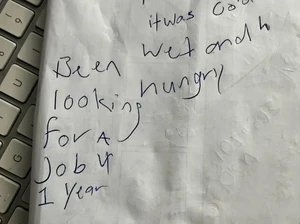 it was Col
Been wet and h
looking hungry
for A
Job 4
1 Year